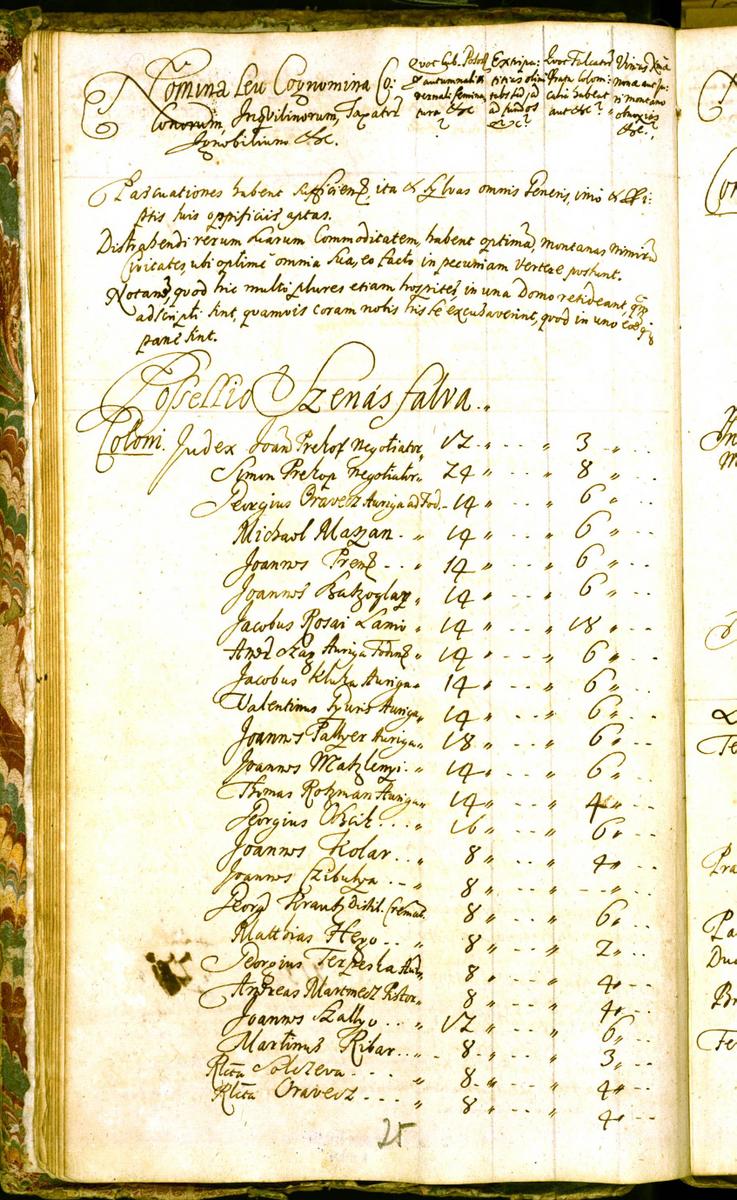 Nomina seu Cognomina Co:
lonorum, Inqvilinorum, Taxator
Ignobilium &c.
Qvot Cub. Poson
& autumnalis
vernalis semina
tura &c
?
Extirpa:
titius olim
subsed, jd
ad fundos
&c?
Qvot Falcator
Prata Coloni:
calia habent
aut &c?
Vineas
nona aut ju:
ri montano
obnoxias
&c.,
Pascuationes habent sufficient ita & sylvas omnis generis, imo & ipsis
suis oppificiis aptas.
Distrahendi rerum suarum Commoditatem, habent optimã, montanas nimirũ
Civitates, ubi optime omnia sua, eo facto in pecuniam vertere possunt.
Notand, quod hic multi plures etiam hospites, in una Domo resideant, qm
adscripti sint, quamvis coram nobis his se excusaverint, quod in uno
pane sint.
Possessio Szenásfalva.
Coloni. Judex Joan Prekop Negotiator 12 " - - " 3 " - -
Simon Prekop negotiator 24 " - - " 8 " - -
Georgius Oravecz Auriga ad Fod. 14 " - - " 6 " - -
Michael Mazan - " 14 " - - " 6 " - -
Joannes Prenz - - " 14 " - - " 6 " - -
Joannes 14 " - - " 6 " - -
Jacobus Rosai Lanio 14 " - - " 18 " - -
Auriga Fodinz " 14 " - - " 6 " - -
Jacobus Kluka Auriga " 14 " - - " 6 " - -
Valentinus Auriga " 14 " - - " 6 " - -
Joannes Pallyer Auriga " 18 " - - " 6 " - -
Joannes Matzlenyi - " 14 " - - " 6 " - -
Thomas Rotzman Auriga " 14 " - - " 4 " - -
Georgius - - " 16 " - - " 6 " - -
Joannes Kolar - - " 8 " - - " 4 " - -
Joannes Czibulya - - " 8 " - - " - - " - -
Georg Krautz distil. Cremat. 8 " - - " 6 " - -
Matthias Hego - - " 8 " - - " 2 " - -
Georgius Auri 8 " - - " 4 " - -
Andreas Martinecz Pistor " 8 " - - " 4 " - -
Joannes Szallyo - - " 12 " - - " 6 " - -
Martinus Ribar - - " 8 " - - " 3 " - -
Rlcta - - - " 8 " - - " 4 " - -
Rlcta Oravecz - - - " 8 " - - " 4 " - -
25